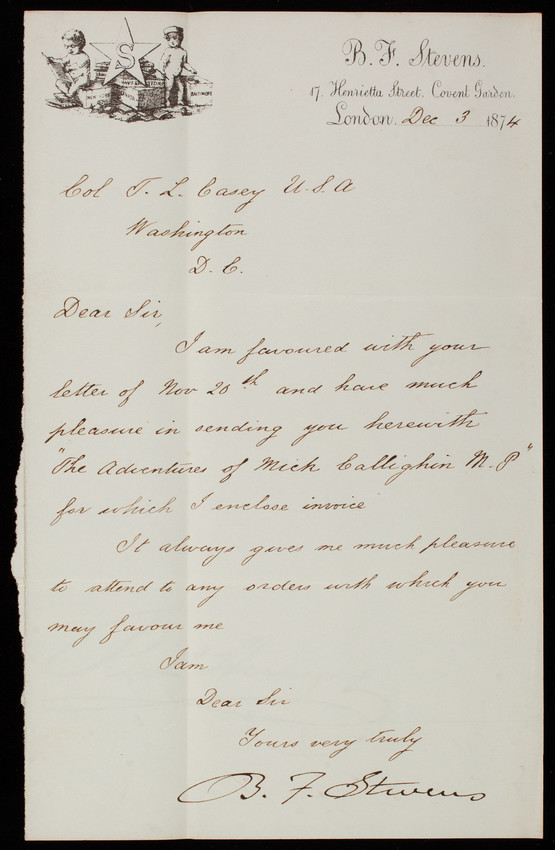 S
NEW YORK
BOSTON
BALTIMORE
B. F. Stevens.
17. Henrietta Street. Covent Garden.
London. Dec 3 1874
Col T. L. Casey U.S.A
Washington
D. C.
Dear Sir,
I am favoured with your
letter of Nov 20th and have much
pleasure in sending you herewith
"The Adventures of Mick Callighin M.P"
for which I enclose invoice
It always gives me much pleasure
to attend to any orders with which you
may favour me
I am
Dear Sir
Yours very truly
B. F. Stevens